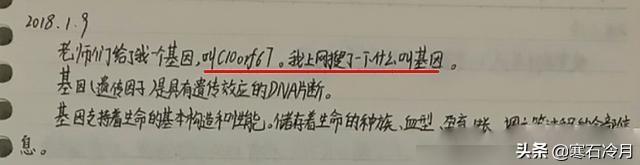 2018.1.9
老师们给了我一个基因,叫C10orf67。我上网搜了一下什么叫基因。
基因(遗传因子)是具有遗传效应的DNA片断。
基因支持着生命的基本构造和性能。储存着生命的种族、血型、孕育
息。
头条@寒石冷月